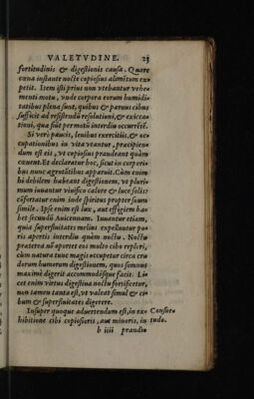 VALETVDINE. 23
fortitudinis & digestionis causa. Quare
cœna instante nocte copiosius alimẽtum ex-
petit. Item isti prius non vtebantur vehe-
menti motu, vnde corpora eorum humidi-
tatibus plena sunt, quibus & parum cibus
sufficit ad resistendũ resolutioni, & exicca-
tioni, quæ fiũt per motũ interdiu occurrẽtẽ.
Si verò paucis, leuibus exercitiis, & oc-
cupationibus in vita vtantur, præcipien-
dum est eis, vt copiosius prandeant quàm
cœnent. Et declaratur hoc, sicut in corpori-
bus nunc ægrotãtibus apparuit. Cùm enim
hi debilem habeant digestionem, vt pluri-
mum iuuantur viuifico calore & luce solis:
cõfortatur enim inde spiritus propter suum
simile. Ipse enim est lux, aut effigiem ha-
bet secundũ Auicennam. Iuuantur etiam,
quia superfluitates melius expelluntur po-
ris apertis interdiu quàm noctu. Noctu
præterea nõ oportet eos multo cibo repleri,
cùm natura tunc magis occupetur circa cru-
dorum humorum digestionem, quos somnus
maximè digerit accommodásque facit. Li-
cet enim virtus digestiua noctu fortificetur,
non tamen tanta est, vt valeat simul & ci-
bum & superfluitates digerere.
Insuper quoque aduertendum est, in ex- Consueto
hibitione cibi copiosioris, aut minoris, in tudo.
b iiij prandio